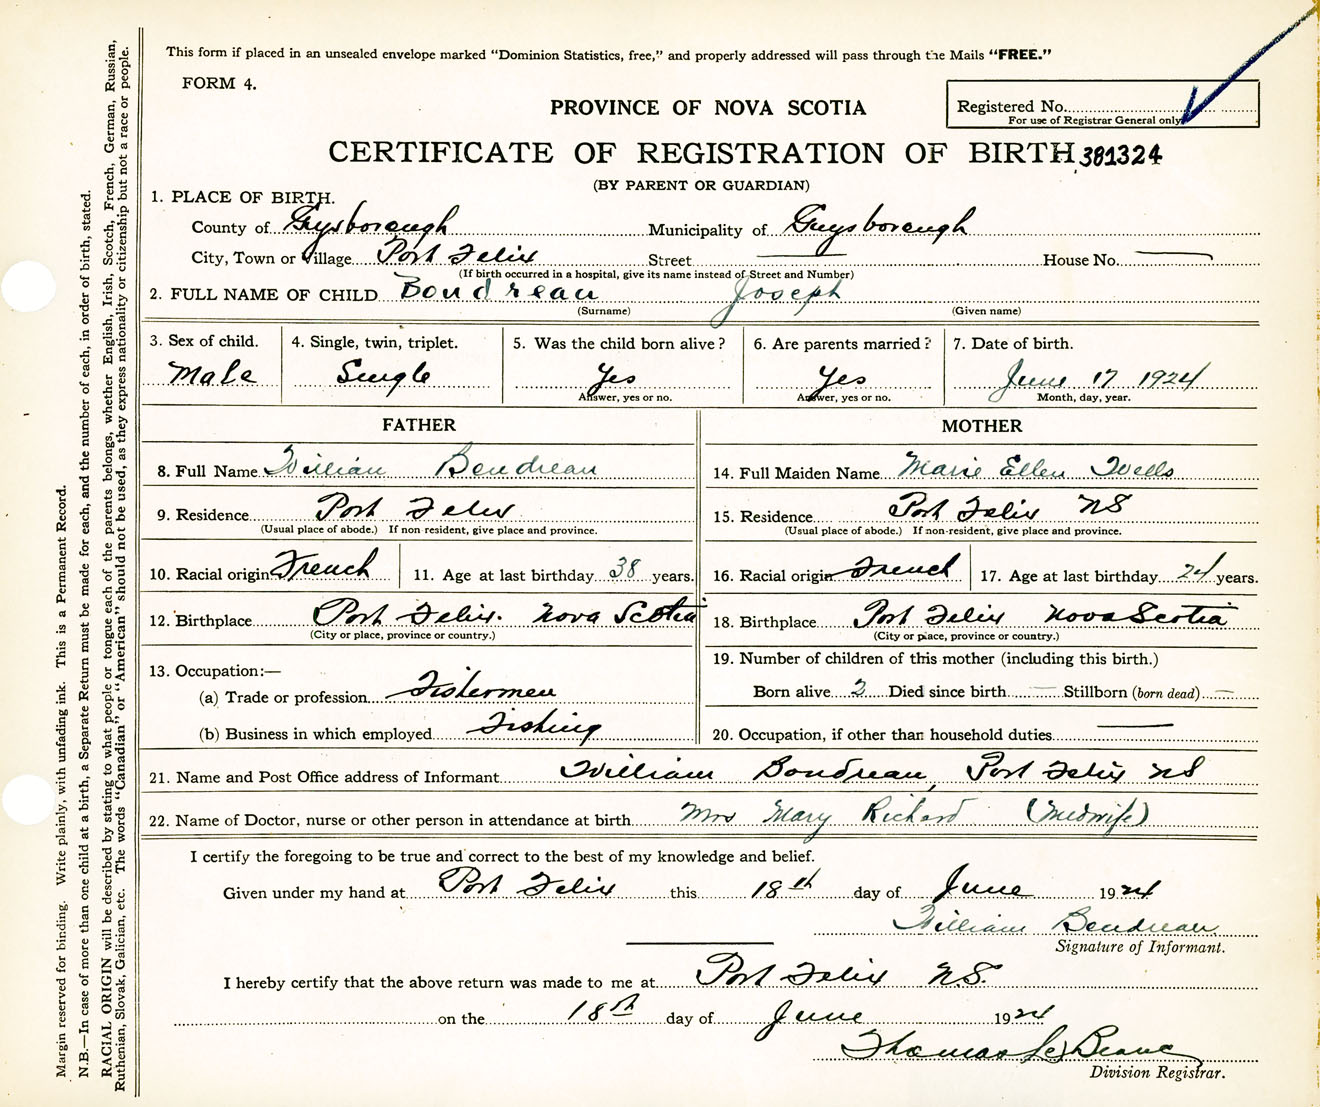 This form if placed in an unsealed envelope marked “Dominion Statistics, free,” and properly addressed will pass through the Mails “FREE.”
FORM 4.
Registered No.
For use of Registrar General only
PROVINCE OF NOVA SCOTIA
CERTIFICATE OF REGISTRATION OF BIRTH 381324
(BY PARENT OR GUARDIAN)
1. PLACE OF BIRTH.
County of Guysborough Municipality of Guysborough
City, Town or Village Port Felix Street — House No. —
(If birth occurred in a hospital, give its name instead of Street and Number)
2. FULL NAME OF CHILD Boudreau Joseph
(Surname) (Given name)
3. Sex of child. 4. Single, twin, triplet. 5. Was the child born alive? 6. Are parents married? 7. Date of birth.
Male Single Yes Yes June 17 1924
Answer, yes or no. Answer, yes or no. Month, day, year.
FATHER MOTHER
8. Full Name William Boudreau 14. Full Maiden Name Marie Ellen Wells
9. Residence Port Felix 15. Residence Port Felix NS
(Usual place of abode.) If non-resident, give place and province. (Usual place of abode.) If non-resident, give place and province.
10. Racial origin French 11. Age at last birthday 38 years. 16. Racial origin French 17. Age at last birthday 24 years.
12. Birthplace Port Felix. Nova Scotia 18. Birthplace Port Felix Nova Scotia
(City or place, province or country.) (City or place, province or country.)
13. Occupation:— 19. Number of children of this mother (including this birth.)
(a) Trade or profession Fishermen Born alive 2 Died since birth — Stillborn (born dead) —
(b) Business in which employed Fishing 20. Occupation, if other than household duties —
21. Name and Post Office address of Informant William Boudreau, Port Felix NS
22. Name of Doctor, nurse or other person in attendance at birth Mrs Mary Richard (Midwife)
I certify the foregoing to be true and correct to the best of my knowledge and belief.
Given under my hand at Port Felix this 18th day of June 1924
William Boudreau
Signature of Informant.
I hereby certify that the above return was made to me at Port Felix N.S.
on the 18th day of June 1924
Thomas
Division Registrar.
Margin reserved for binding. Write plainly, with unfading ink. This is a Permanent Record.
N.B.—In case of more than one child at a birth, a Separate Return must be made for each, and the number of each, in order of birth, stated.
RACIAL ORIGIN will be described by stating to what people or tongue each of the parents belongs, whether English, Irish, Scotch, French, German, Russian,
Ruthenian, Slovak, Galician, etc. The words “Canadian” or “American” should not be used, as they express nationality or citizenship but not a race or people.